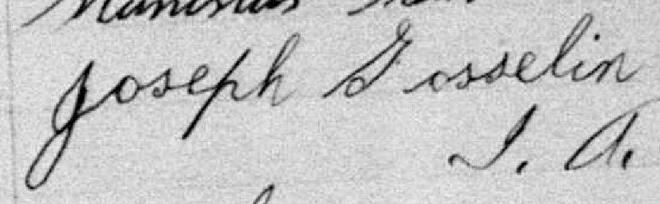 Joseph Gosselin
J. A.